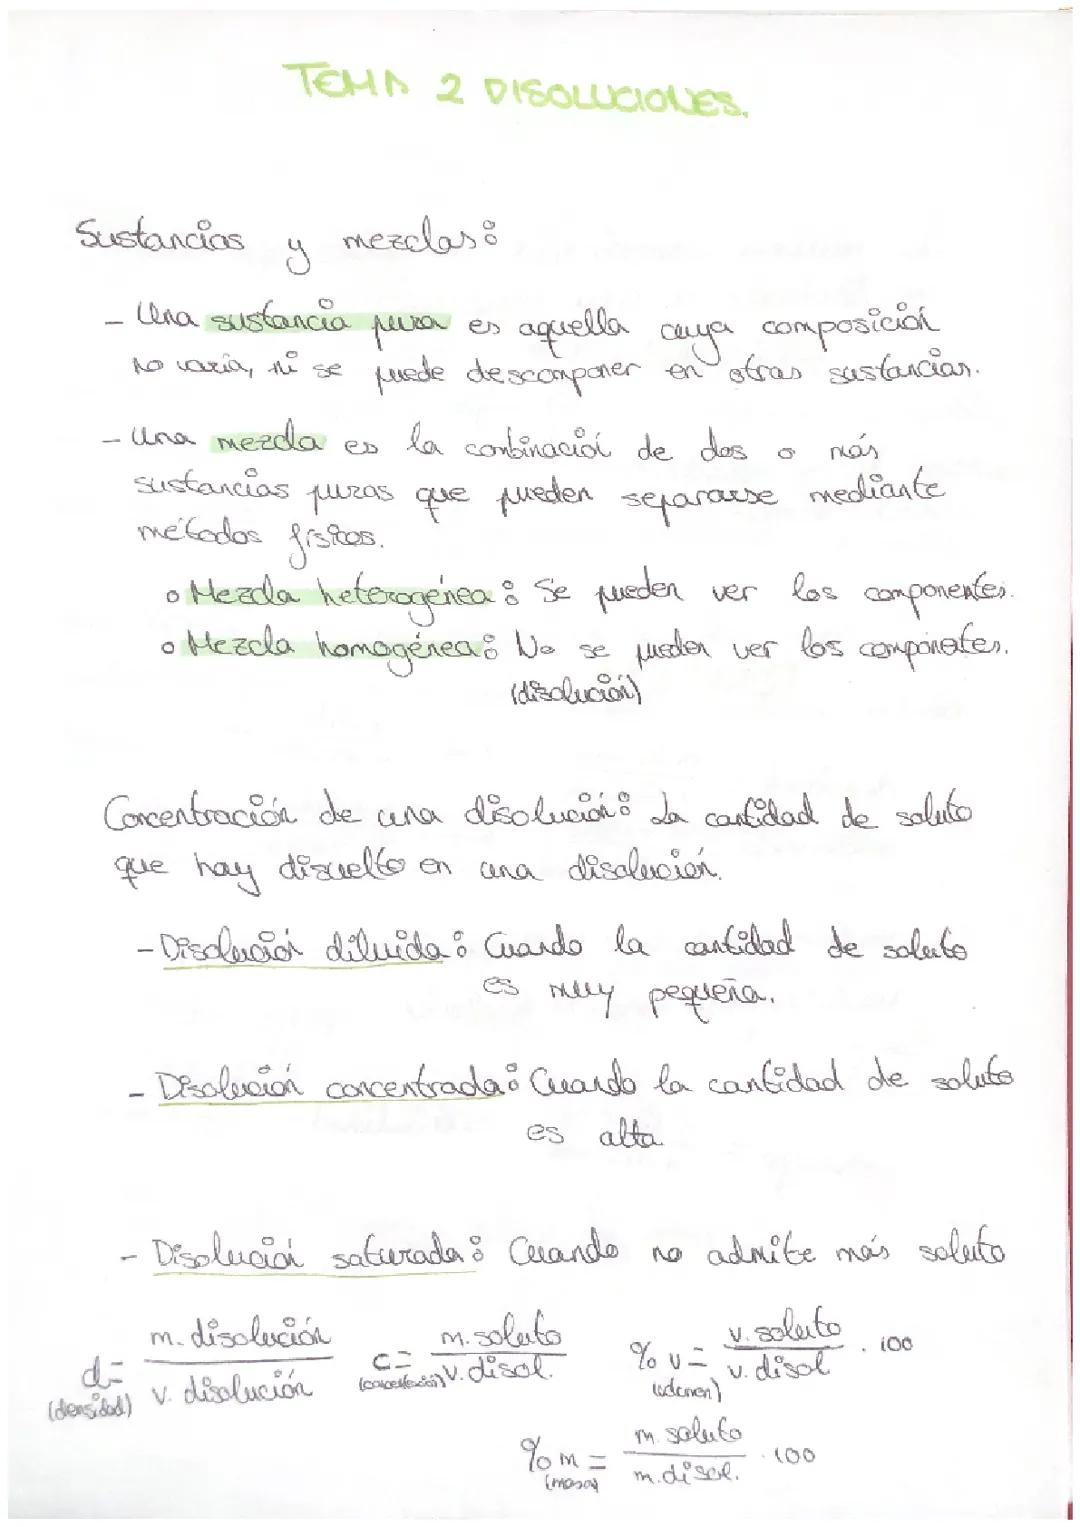 TEMA 2 DISOLUCIONES.
Sustancias y mezclas:
- Una sustancia pura es aquella cuya composición
no varía, ni se puede descomponer en otras sustancias.
- Una mezcla es la combinación de dos o más
sustancias puras que pueden separarse mediante
métodos físicos.
o Mezcla heterogénea: Se pueden ver los componentes.
o Mezcla homogénea: No se pueden ver los componetes.
(disolución)
Concentración de una disolución: La cantidad de soluto
que hay disuelto en una disolución.
- Disolución diluida: Cuando la cantidad de soluto
es muy pequeña.
- Disolución concentrada: Cuando la cantidad de soluto
es alta.
- Disolución saturada: Cuando no admite más soluto
d= m. disolución / v. disolución
(densidad)
c= m. soluto / v. disol.
(concentración)
% v= v. soluto / v. disol . 100
(volumen)
% m = m. soluto / m. disol. . 100
(masa)